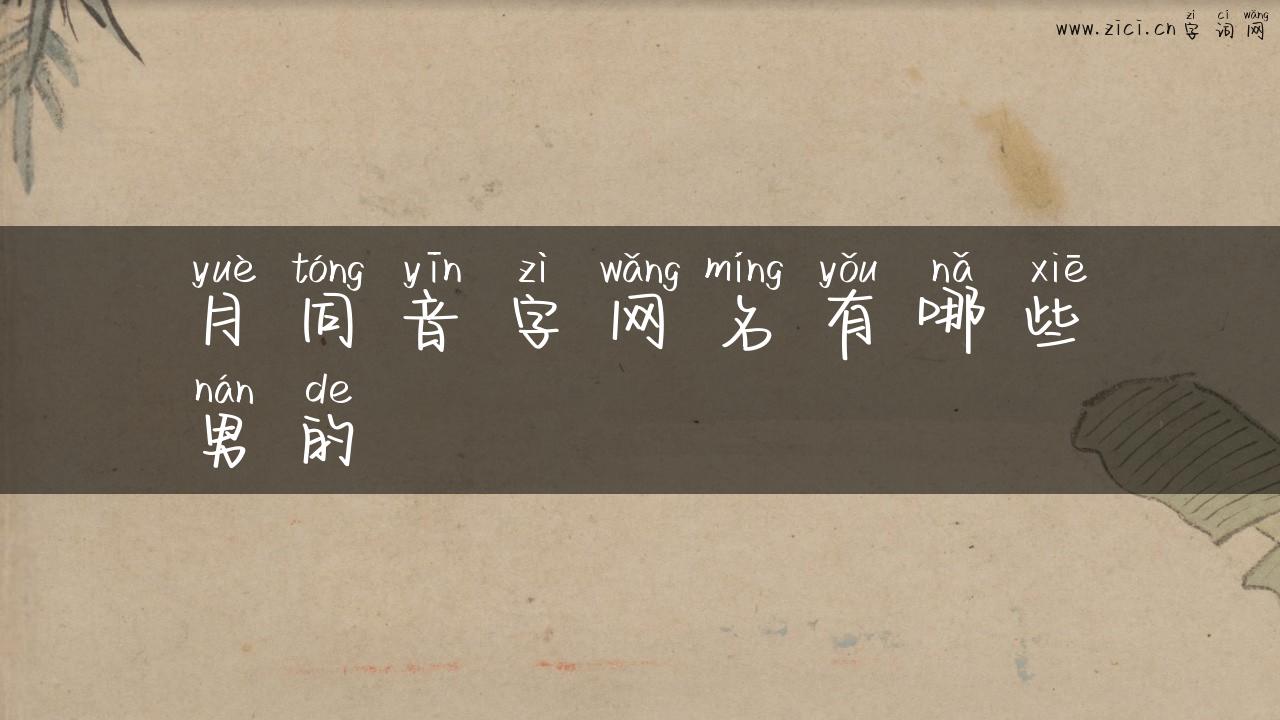 zì cí wǎng
www.zici.cn 字词网
yuè tóng yīn zì wǎng míng yǒu nǎ xiē
月同音字网名有哪些
nán de
男的